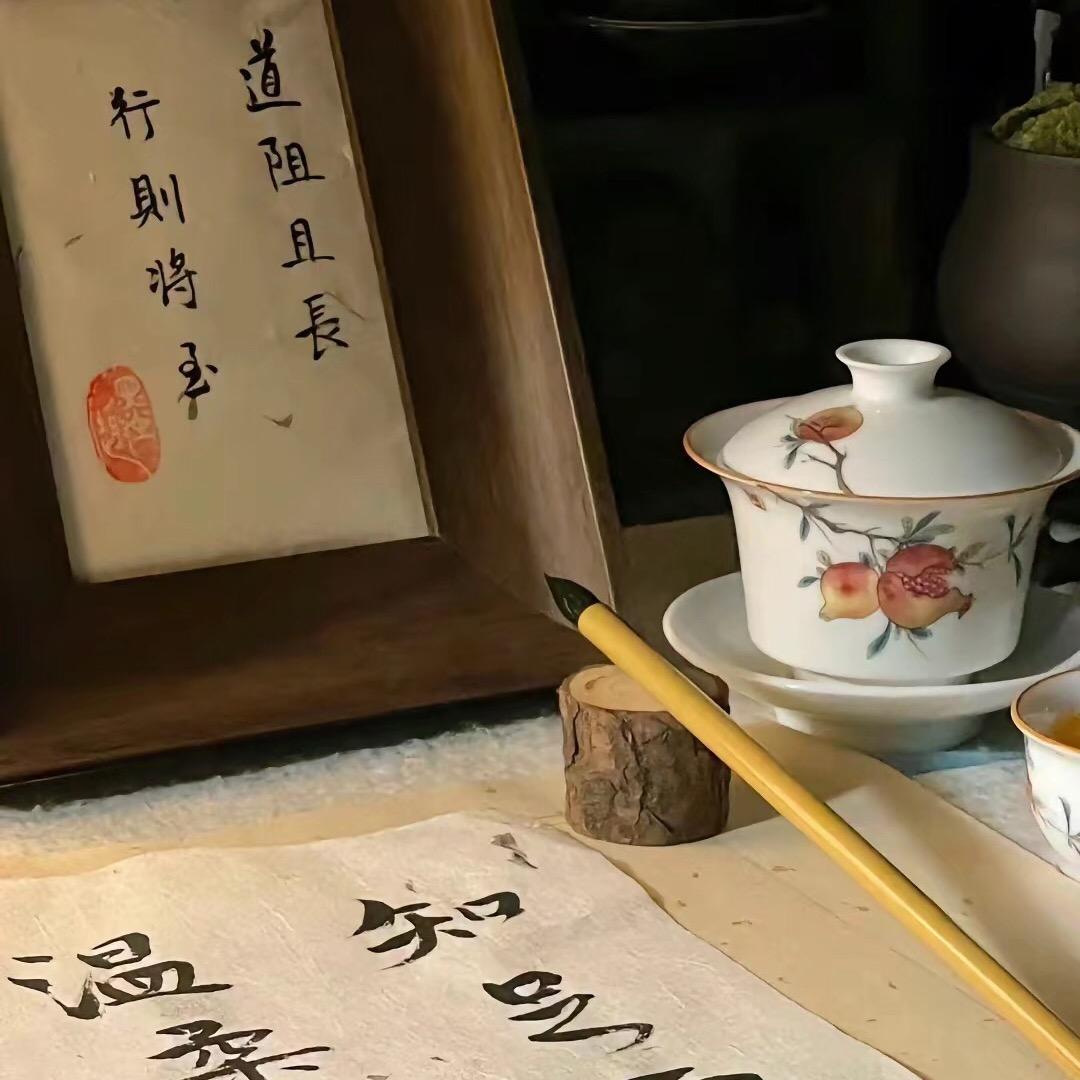 道阻且長
行則將至
知足
温柔